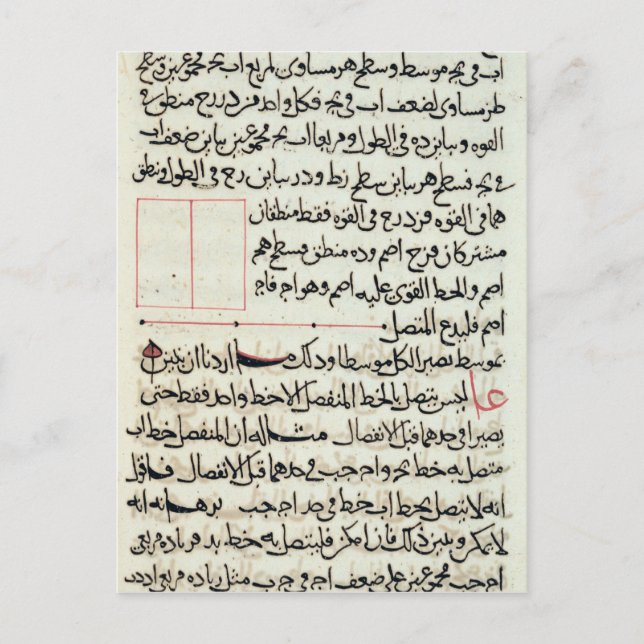 اب في بج موسط وسطح هر مساوى لمربع اب بج مجموعين وسطح
طز مساوى لضعف اب في بج فكل واحد من در رح منطق في
القوه ومباين ده في الطول ومربعا اب بج مجموعين يباين ضعف اب
في بج فسطح هر يباين سطح زط و در يباين رح في الطول ومنطق
هما في القوه فزد رح في القوه فقط منطقان
مشتركان فزح اصم وده منطق فسطح هح
اصم والخط القوى عليه اصم وهو اج فاج
اصم فليدع المتصل
بموسط يصير الكل موسطا وذلك ما اردنا ان نبين
عا ليس يتصل بالخط المنفصل الا خط واحد فقط حتى
يصير في حدهما قبل الانفصال مثاله ان المنفصل خط اب
متصل به خط بج و اج جب في حدهما قبل الانفصال فاقول
انه لا يتصل بخط اب خط في حد اج جب برهانه انه
لا يمكن وتبين ذلك فان امكن فليتصل به خط بد فزياده مربعى
اج جب مجموعين على ضعف اج في جب مثل زياده مربعى اد دب